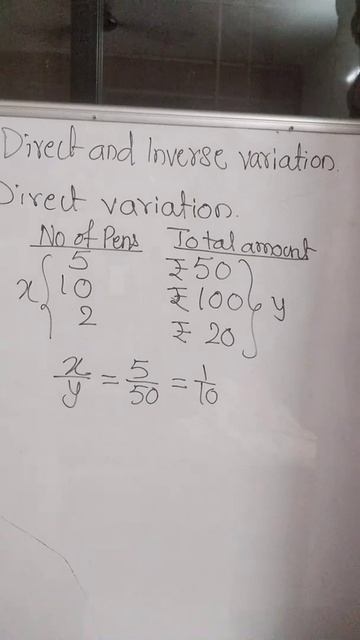 Direct and Inverse variation.
Direct variation.
No of Pens Total amount
5 ₹50
x { 10 ₹100 } y
2 ₹ 20
x/y = 5/50 = 1/10